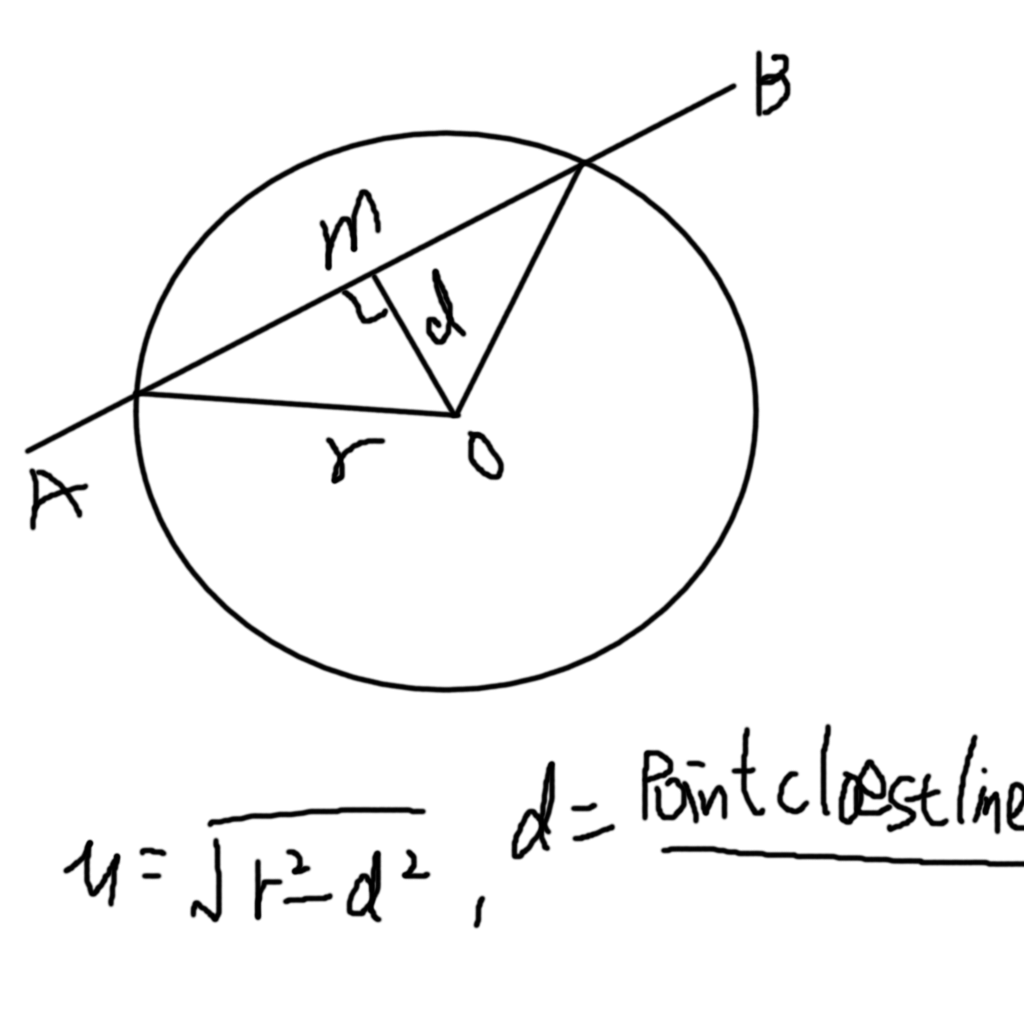 B
m
d
r
O
A
u = √r²-d² , d = Point cloest line